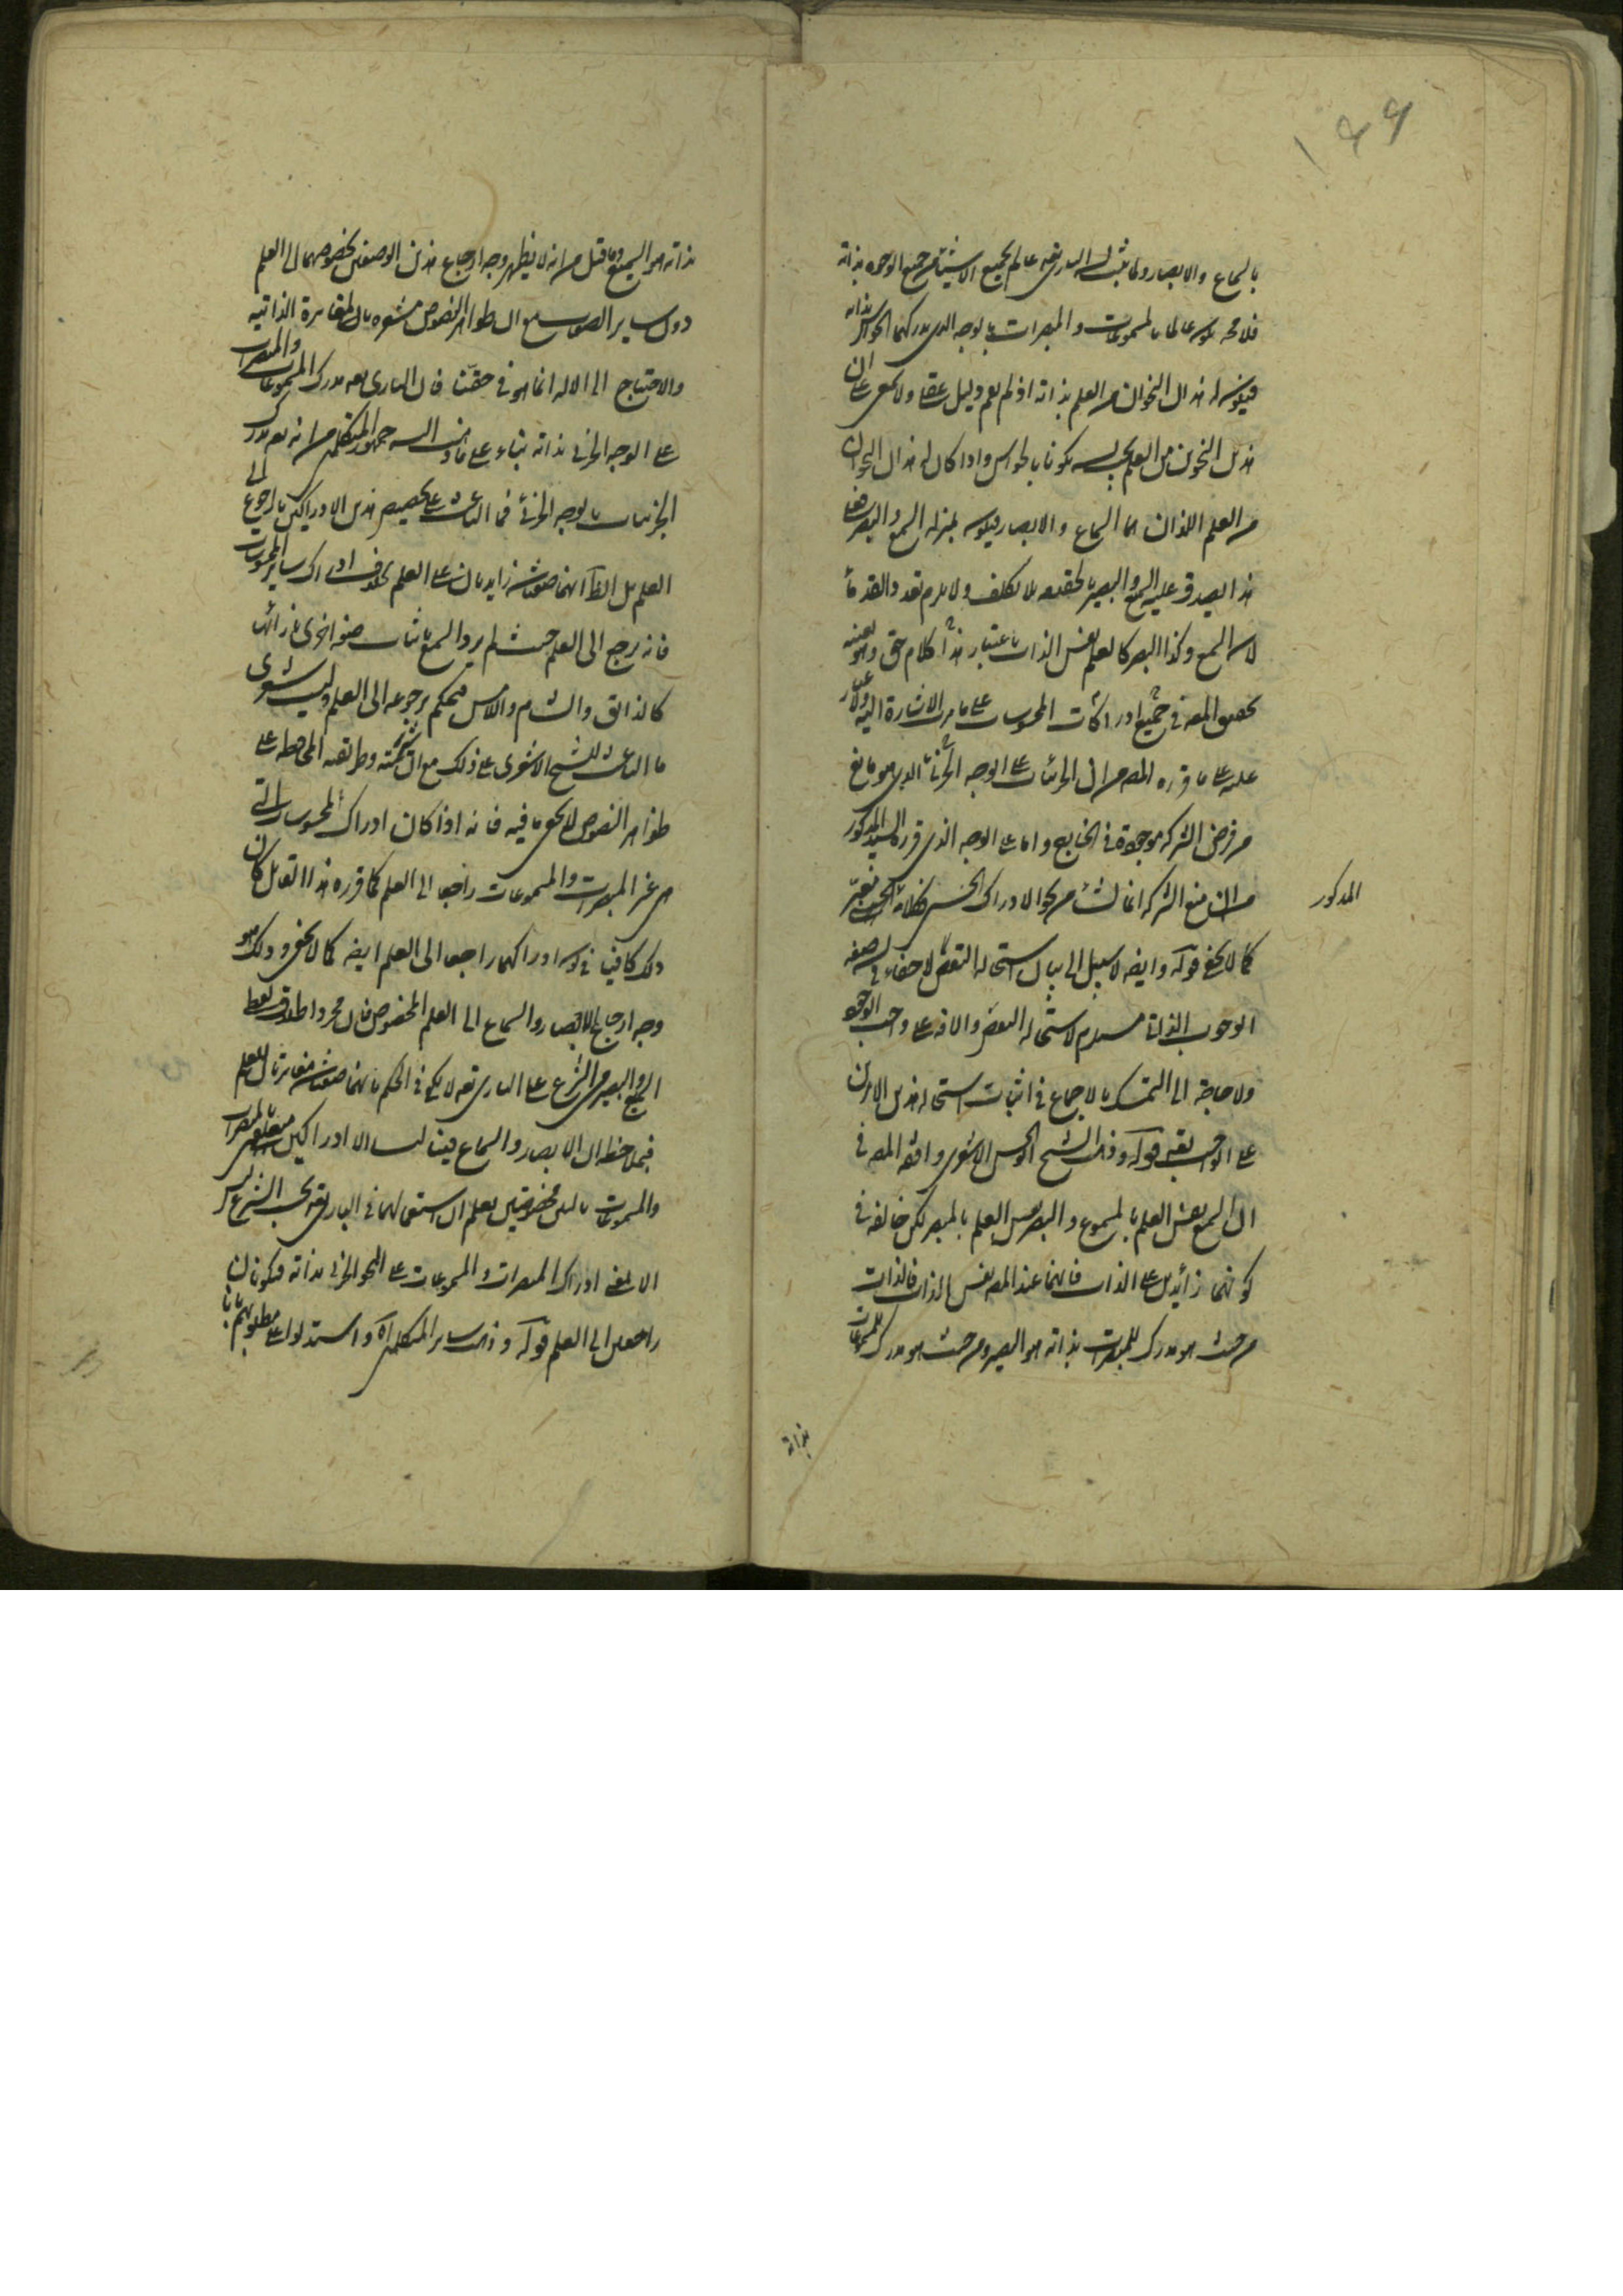 ١٩٩
بالسماع والابصار ولما ثبت ان البارى تعه عالم بجميع الاشياء من جميع الوجوه بذاته
فلا محه يكون عالما بالمسموعات والمبصرات بالوجه الذى يدركهما الحواس بذاته
فيكون له هذان النحوان من العلم بذاته اذ لم يقم دليل عقلى ولا سمعى على ان
هذين النحوين من العلم يجب ان يكونا بالحواس واذا كان له هذان النحوان
من العلم اللذان هما السماع والابصار فيكون بمنزلة السمع والبصر فعلى
هذا يصدق عليه السميع والبصير بالحقيقة بلا تكلف ولا يلزم تعدد القدماء
لان السمع وكذا البصر كالعلم نفس الذات باعتبار هذا كلام حق وهو بعينه
تحقيق المصه فى جميع ادراكات المحسوسات على ما مرت الاشارة اليه ولا غبار
عليه على ما قرره المصه من ان الجزئيات على الوجه الجزئى الذى هو مانع
من فرض الشركة موجودة فى الخارج واما على الوجه الذى قرره السيد المذكور
من ان منع الشركة انما نشأ من نحو الادراك الحسى فكلامه
كما لا يخفى قوله وايضه لا سبيل الى بيان استحالة النقص لا خفاء فى ان صفة
الوجوب الذاتى مستلزم لاستحالة النقص والافة على واجب الوجود
ولا حاجة الى التمسك بالاجماع فى اثبات استحالة هذين الامرين
على الواجب تعه قوله وذهب الشيخ ابو الحسن الاشعرى وافقه المصه فى
ان السمع نفس العلم بالمسموع والبصر نفس العلم بالمبصر لكن خالفه فى
كونهما زائدين على الذات فانهما عند المصه نفس الذات فالذات
من حيث هو مدرك للمبصرات بذاته هو البصير ومن حيث هو مدرك للمسموعات
المذكور
بذاته
بذاته هو السميع وما قيل من انه لا يظهر وجه ارجاع هذين الوصفين بخصوصهما الى العلم
دون ساير الصفات مع ان ظواهر النصوص مشعرة بان المغايرة الذاتية
والاحتياج الى الالة انما هو فى حقنا فان البارى تعه مدرك المسموعات والمبصرات
على الوجه الجزئى بذاته بناء على ما ذهب اليه جمهور المتكلمين من انه تعه مدرك
الجزئيات بالوجه الجزئى فما الباعث على تخصيص هذين الادراكين بالرجوع الى
العلم بل الظاهر انهما صفتان زايدتان على العلم بخلاف ادراك ساير المحسوسات
فانه يرجع الى العلم حيث لم يرد السمع باثبات صفة اخرى بازائها
كالذائق والشام واللامس فيحكم برجوعه الى العلم وليت شعرى
ما الباعث للشيخ الاشعرى على ذلك مع ان شيمته وطريقته المحافظة على
ظواهر النصوص لا يخفى ما فيه فانه اذا كان ادراك المحسوسات التى
من غير المبصرات والمسموعات راجعا الى العلم كما قرره هذا القائل كان
ذلك كافيا فى كون ادراكهما راجعا الى العلم ايضه كما لا يخفى وذلك هو
وجه ارجاع الابصار والسماع الى العلم المخصوص فان مجرد اطلاق لفظ
السميع والبصير فى الشرع على البارى تعه لا يكفى فى الحكم بانهما صفتان مغايرتان للعلم
فبملاحظة ان الابصار والسماع فينا ليسا الا ادراكين متعلقين بالمبصرات
والمسموعات بالتين مخصوصتين يعلم ان استعمالهما فى البارى تعه بحسب الشرع ليس
الا بمعنى ادراك المبصرات والمسموعات على النحو الجزئى بذاته فيكونان
راجعين الى العلم قوله وذهب ساير المتكلمين اه واستدلوا على مطلوبهم بانا